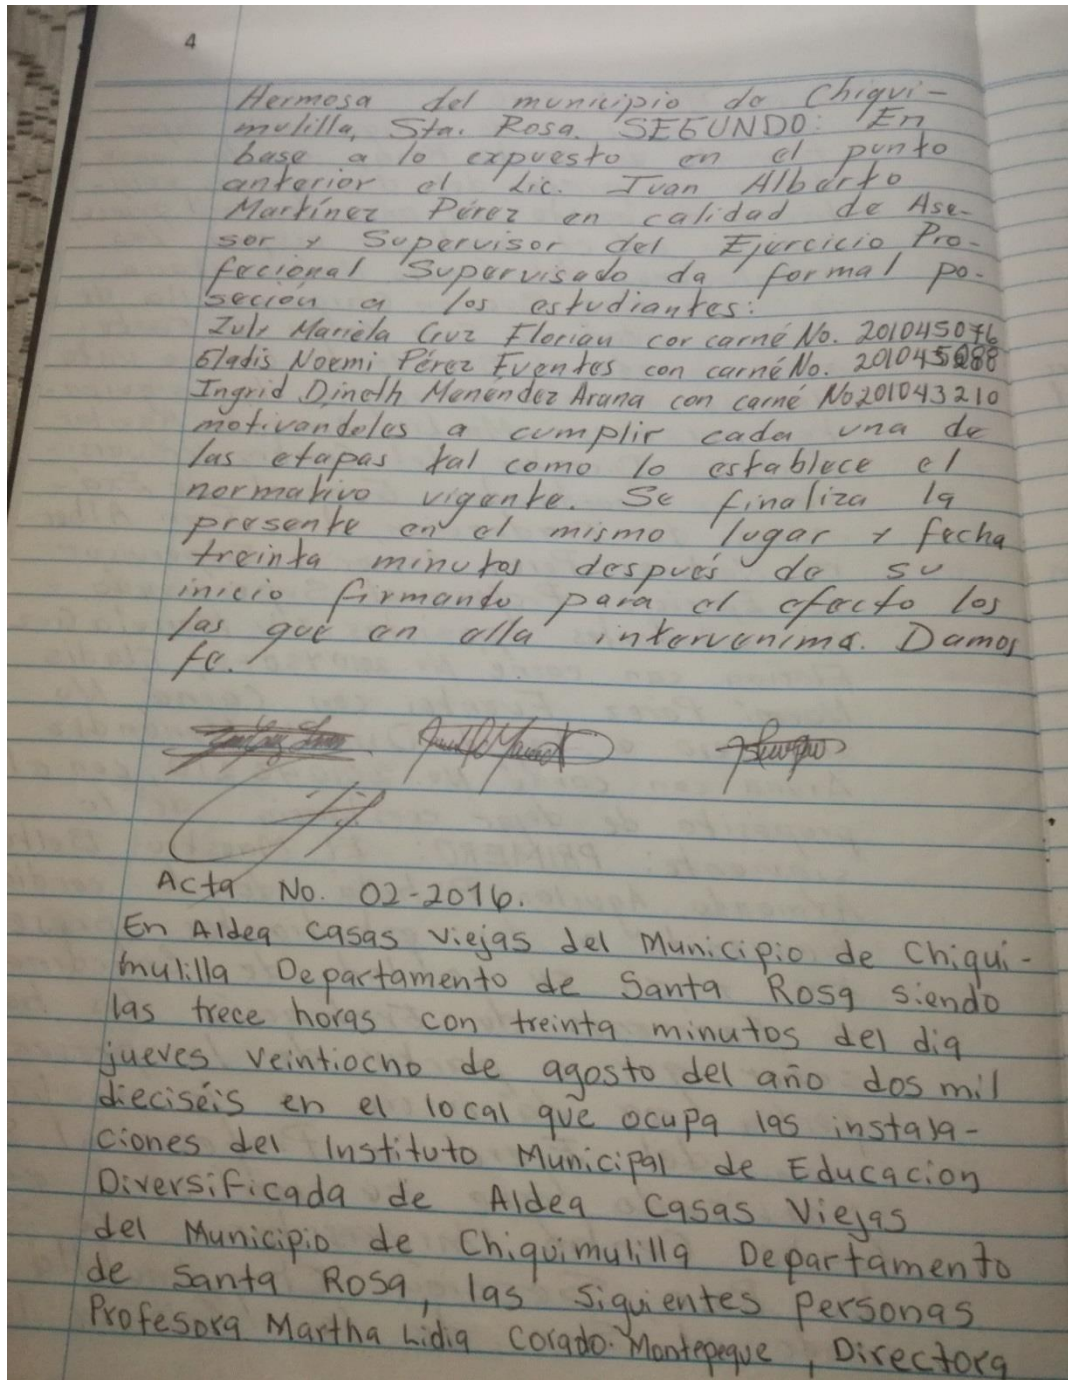 4
Hermosa del municipio de Chiqui-
mulilla, Sta. Rosa. SEGUNDO: En
base a lo expuesto en el punto
anterior el Lic. Ivan Alberto
Martínez Pérez en calidad de Ase-
sor y Supervisor del Ejercicio Pro-
fecional Supervisado da formal po-
seción a los estudiantes:
Zuly Mariela Cruz Florian cor carné No. 201045076
Gladis Noemi Pérez Fuentes con carné No. 201045088
Ingrid Dineth Menéndez Arana con carné No 201043210
motivandoles a cumplir cada una de
las etapas tal como lo establece el
normativo vigente. Se finaliza la
presente en el mismo lugar y fecha
treinta minutos después de su
inicio firmando para el efecto los
las que en ella intervenima. Damos
fe.
Acta No. 02-2016.
En Aldea Casas Viejas del Municipio de Chiqui-
mulilla Departamento de Santa Rosa siendo
las trece horas con treinta minutos del dia
jueves veintiocho de agosto del año dos mil
dieciséis en el local que ocupa las instala-
ciones del Instituto Municipal de Educacion
Diversificada de Aldea Casas Viejas
del Municipio de Chiquimulilla Departamento
de Santa Rosa, las siguientes personas
Profesora Martha Lidia Corado Montepeque, Directora